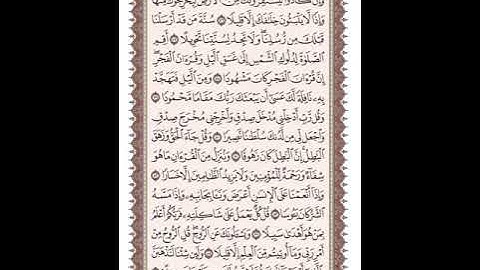 وَإِن كَادُوا۟ لَيَسْتَفِزُّونَكَ مِنَ ٱلْأَرْضِ لِيُخْرِجُوكَ مِنْهَا
وَإِذًا لَّا يَلْبَثُونَ خِلَٰفَكَ إِلَّا قَلِيلًا ۝ سُنَّةَ مَن قَدْ أَرْسَلْنَا
قَبْلَكَ مِن رُّسُلِنَا وَلَا تَجِدُ لِسُنَّتِنَا تَحْوِيلًا ۝ أَقِمِ
ٱلصَّلَوٰةَ لِدُلُوكِ ٱلشَّمْسِ إِلَىٰ غَسَقِ ٱلَّيْلِ وَقُرْءَانَ ٱلْفَجْرِ
إِنَّ قُرْءَانَ ٱلْفَجْرِ كَانَ مَشْهُودًا ۝ وَمِنَ ٱلَّيْلِ فَتَهَجَّدْ
بِهِۦ نَافِلَةً لَّكَ عَسَىٰٓ أَن يَبْعَثَكَ رَبُّكَ مَقَامًا مَّحْمُودًا ۝
وَقُل رَّبِّ أَدْخِلْنِى مُدْخَلَ صِدْقٍ وَأَخْرِجْنِى مُخْرَجَ صِدْقٍ
وَٱجْعَل لِّى مِن لَّدُنكَ سُلْطَٰنًا نَّصِيرًا ۝ وَقُلْ جَآءَ ٱلْحَقُّ وَزَهَقَ
ٱلْبَٰطِلُ إِنَّ ٱلْبَٰطِلَ كَانَ زَهُوقًا ۝ وَنُنَزِّلُ مِنَ ٱلْقُرْءَانِ مَا هُوَ
شِفَآءٌ وَرَحْمَةٌ لِّلْمُؤْمِنِينَ وَلَا يَزِيدُ ٱلظَّٰلِمِينَ إِلَّا خَسَارًا ۝
وَإِذَآ أَنْعَمْنَا عَلَى ٱلْإِنسَٰنِ أَعْرَضَ وَنَـَٔا بِجَانِبِهِۦ وَإِذَا مَسَّهُ
ٱلشَّرُّ كَانَ يَـُٔوسًا ۝ قُلْ كُلٌّ يَعْمَلُ عَلَىٰ شَاكِلَتِهِۦ فَرَبُّكُمْ أَعْلَمُ
بِمَنْ هُوَ أَهْدَىٰ سَبِيلًا ۝ وَيَسْـَٔلُونَكَ عَنِ ٱلرُّوحِ قُلِ ٱلرُّوحُ مِنْ
أَمْرِ رَبِّى وَمَآ أُوتِيتُم مِّنَ ٱلْعِلْمِ إِلَّا قَلِيلًا ۝ وَلَئِن شِئْنَا لَنَذْهَبَنَّ